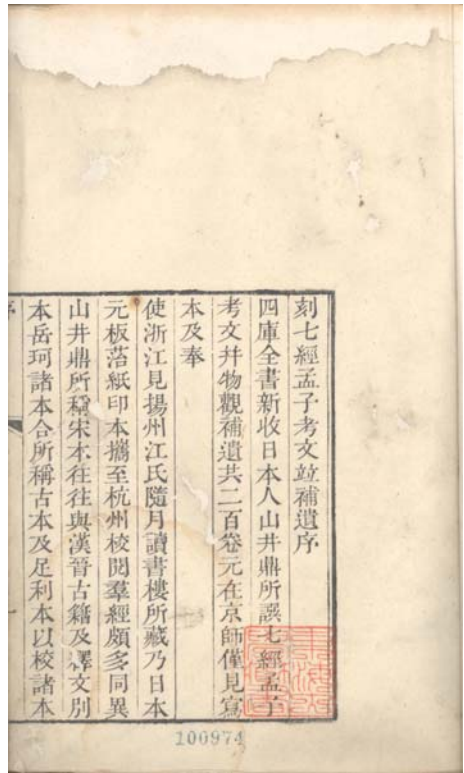 刻七經孟子考文竝補遺序
四庫全書新收日本人山井鼎所譔七經孟子
考文幷物觀補遺共二百卷元在京師僅見寫
本及奉
使浙江見揚州江氏隨月讀書樓所藏乃日本
元板落紙印本攜至杭州校閱羣經頗多同異
山井鼎所稱宋本往往與漢晉古籍及釋文別
本岳珂諸本合所稱古本及足利本以校諸本
序
一
100974